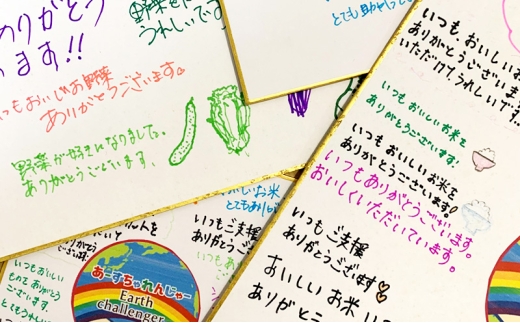 ありがとう
ます!!
野菜
うれしいです
とても助かって
いつもおいしいお野菜
ありがとうございます。
野菜が好きになりました。
ありがとうございます。
いつも、おいしい
ありがとうございます
いただけてうれしいです
いつもおいしいお米を
ありがとうございます!
いつもおいしいお米を
ありがとうございます!
いつもありがとうございます。
おいしくいただいています。
いつもご支援
ありがとうございます
おいしい お米 い
ありがと
お米
とてもあり
いつもご支援
ありがとうご
を
ありがとう
ございます。
いつもおいしい
ものをありがとう
ございます。
とてもうれし
あーすちゃれんじゃー
Earth
Challenger